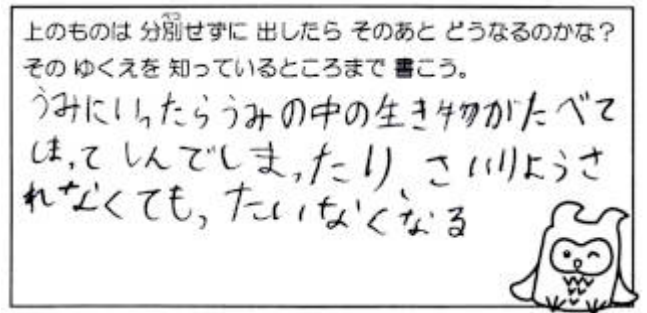 上のものは 分別せずに 出したら そのあと どうなるのかな?
その ゆくえを 知っているところまで 書こう。
うみにいったらうみの中の生き物がたべて
しまってしんでしまったり、さいりようさ
れなくてもったいなくなる